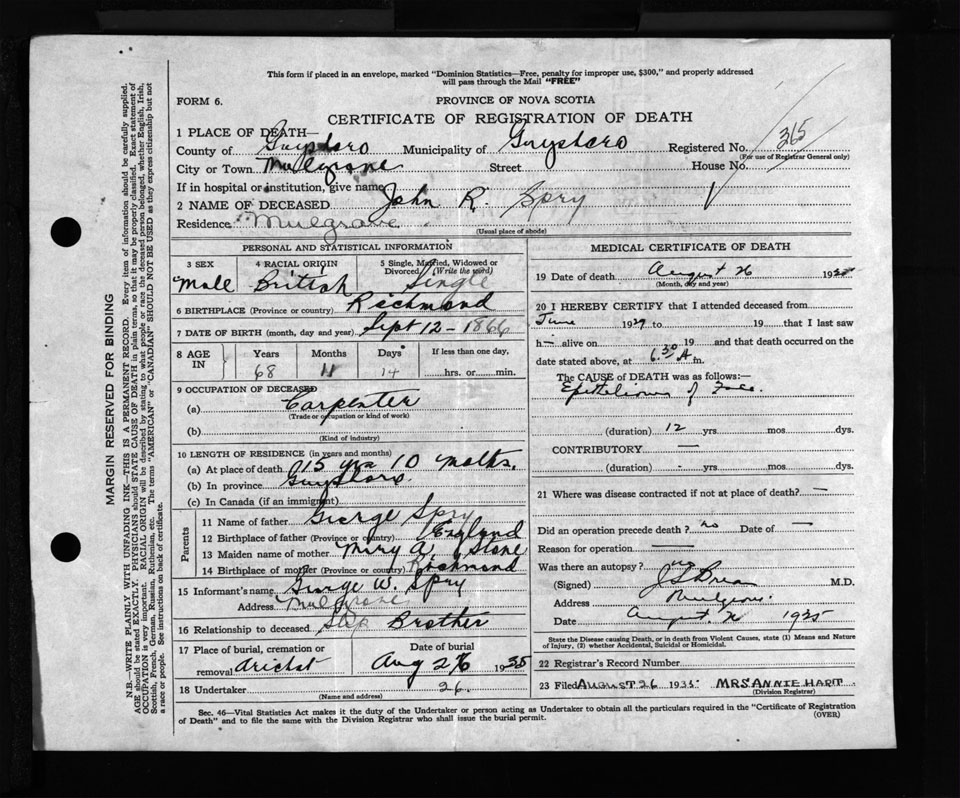 This form if placed in an envelope, marked "Dominion Statistics—Free, penalty for improper use, $300," and properly addressed
will pass through the Mail "FREE"
FORM 6.
PROVINCE OF NOVA SCOTIA
CERTIFICATE OF REGISTRATION OF DEATH
1 PLACE OF DEATH—
County of Guysboro Municipality of Guysboro Registered No. 365
(For use of Registrar General only)
City or Town Mulgrave Street House No.
If in hospital or institution, give name
2 NAME OF DECEASED John R. Spry
Residence Mulgrave
(Usual place of abode)
PERSONAL AND STATISTICAL INFORMATION
3 SEX 4 RACIAL ORIGIN 5 Single, Married, Widowed or Divorced (Write the word)
Male British Single
6 BIRTHPLACE (Province or country) Richmond
7 DATE OF BIRTH (month, day and year) Sept 12 - 1866
8 AGE IN Years Months Days If less than one day,
68 11 14 hrs. or min.
9 OCCUPATION OF DECEASED
(a) Carpenter
(Trade or occupation or kind of work)
(b)
(Kind of industry)
10 LENGTH OF RESIDENCE (in years and months)
(a) At place of death 15 yrs 10 moths.
(b) In province Guysboro
(c) In Canada (if an immigrant)
Parents
11 Name of father George Spry
12 Birthplace of father (Province or country) England
13 Maiden name of mother Mary A. Stone
14 Birthplace of mother (Province or country) Richmond
15 Informant's name George W. Spry
Address Mulgrave
16 Relationship to deceased Step Brother
17 Place of burial, cremation or removal Arichat
Date of burial
Aug 26 1935
18 Undertaker 26.
(Name and address)
MEDICAL CERTIFICATE OF DEATH
19 Date of death August 26 1935
(Month, day and year)
20 I HEREBY CERTIFY that I attended deceased from
June 1927 to 19 that I last saw
h— alive on 19 and that death occurred on the
date stated above, at 6.30 A m.
The CAUSE of DEATH was as follows:—
Epithelioma of Face.
(duration) 12 yrs. mos. dys.
CONTRIBUTORY —
(duration) - yrs. mos. dys.
21 Where was disease contracted if not at place of death? —
Did an operation precede death? no Date of —
Reason for operation —
Was there an autopsy? no
(Signed) M.D.
Address Mulgrave
Date August 26 1935
State the Disease causing Death, or in death from Violent Causes, state (1) Means and Nature
of Injury, (2) whether Accidental, Suicidal or Homicidal.
22 Registrar's Record Number
23 Filed AUGUST 26 1935 MRS ANNIE HART
(Division Registrar)
Sec. 46—Vital Statistics Act makes it the duty of the Undertaker or person acting as Undertaker to obtain all the particulars required in the "Certificate of Registration
of Death" and to file the same with the Division Registrar who shall issue the burial permit.
(OVER)
MARGIN RESERVED FOR BINDING
N.B.—WRITE PLAINLY WITH UNFADING INK—THIS IS A PERMANENT RECORD. Every item of information should be carefully supplied.
AGE should be stated EXACTLY. PHYSICIANS should STATE CAUSE OF DEATH in plain terms, so that it may be properly classified. Exact statement of
OCCUPATION is very important. RACIAL ORIGIN will be described by stating to what people or race the deceased person belonged, whether English, Irish,
Scottish, French, German, Russian, Ruthenian, etc. The terms "AMERICAN" or "CANADIAN" SHOULD NOT BE USED as they express citizenship but not
a race or people. See instructions on back of certificate.